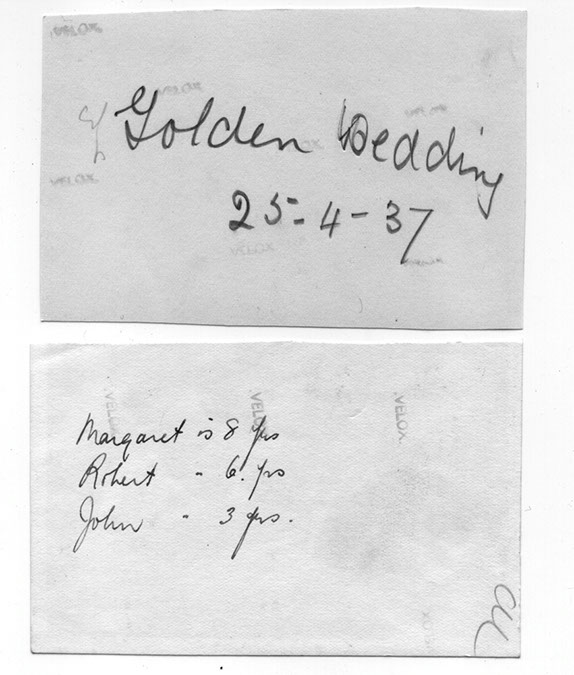 VELOX
VELOX
Golden Wedding
VELOX
25-4-37
VELOX
VELOX
VELOX
VELOX
Margaret is 8 yrs
Robert " 6. yrs
John " 3 yrs.